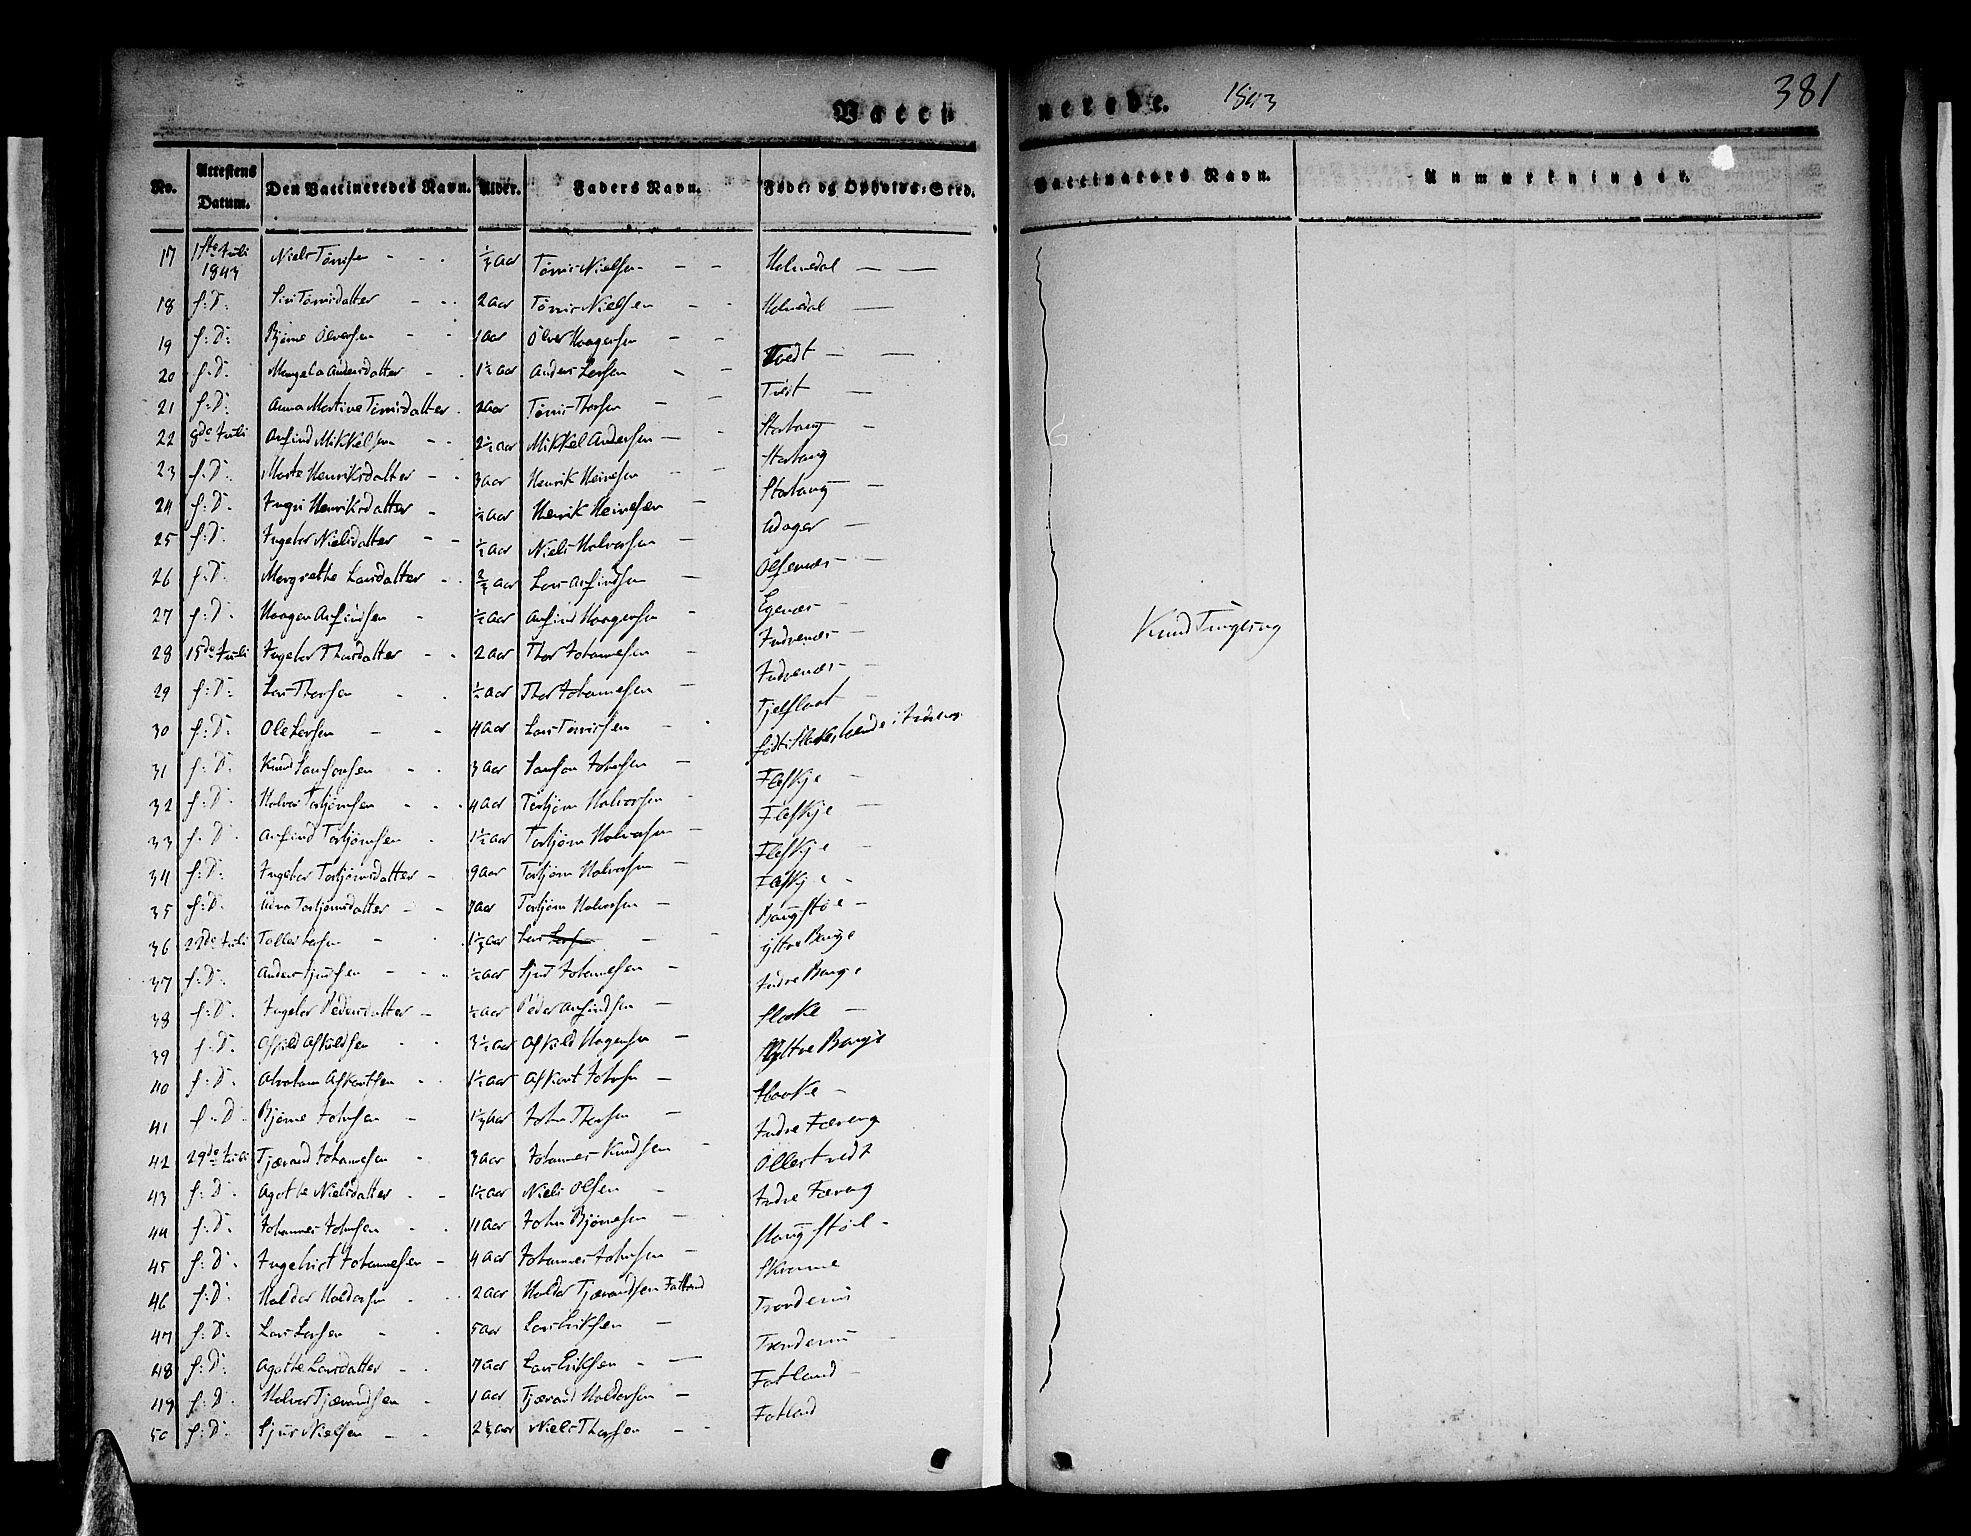 Vacci nerede. 1843 381
No. Attestens Datum. Den Vaccineredes Navn. Alder. Faders Navn. Føde= og Opholds=Sted. Vaccinators Navn. Anmærkninger.
17 1ste Juli 1843 Niels Tønnisen - - - 1/3 Aar Tønnis Nielsen - - Holmedal - -
18 f: D: Siri Tønnisdatter - - 2 Aar Tønnis Nielsen - - Holmedal -
19 f: D: Bjørne Olversen - - 1 Aar Olver Haagensen - - Tvedt - -
20 f: D: Mangela Andersdatter - - 1 1/2 Aar Anders Larsen - - Tvedt -
21 f: D: Anna Martine Tønnisdatter - 2 Aar Tønnis Thorsen - - Storhaug -
22 8de Juli Arfind Mikkelsen - - 2 1/2 Aar Mikkel Andersen - - Storhaug
23 f: D: Marte Henriksdatter - - 3 Aar Henrik Heinesen - - Storhaug -
24 f: D: Ingri Henriksdatter - 1/2 Aar Henrik Heinesen - Udager -
25 f: D: Ingebor Nielsdatter - - 1/2 Aar Niels Halvorsen - Olfernæs -
26 f: D: Mergrethe Larsdatter - 2/3 Aar Lars Arfindsen - Egenæs -
27 f: D: Haagen Arfindsen - 1/2 Aar Arfind Haagensen - Indrenæs -
28 15de Juli Ingebor Thorsdatter - - 2 Aar Thor Johannesen - Indrenæs -
29 f: D: Lars Thorsen - - 1/2 Aar Thor Johannesen - Tjelflaat -
30 f: D: Ole Larsen - - 4 Aar Lars Tønnisen - -
31 f: D: Knud Samsonsen - - 3 Aar Samson Johnsen - Flæskje -
32 f: D: Halvor Torbjørnsen - - - 4 Aar Torbjørn Halvorsen - Flæskje -
33 f: D: Arfind Torbjørnsen - 1 1/2 Aar Torbjørn Halvorsen - Flæskje -
34 f: D: Ingebor Torbjørnsdatter - 9 Aar Torbjørn Halvorsen - Flæskje -
35 f: D: Torbjørnsdatter - - 7 Aar Torbjørn Halvorsen - Haugstøe -
36 22de Juli Tollef Larsen - - 1 1/3 Aar Lars Lars - - Yttre Bauge
37 f: D: Anders Sjursen - - - 1/2 Aar Sjur Johannesen - Indre Bauge
38 f: D: Ingebor Pedersdatter - 1/2 Aar Peder Arfindsen - Flaake -
39 f: D: Askild Askildsen - - 3 1/2 Aar Askild Hagensen - Yttre Bauge
40 f: D: Abraham Askoutsen - - 1 1/2 Aar Askout Johnsen - Flaake -
41 f: D: Bjørne Johnsen - 1 1/3 Aar John Thorsen - Indre Fæveng
42 29de Juli Tjærand Johannesen - 3 Aar Johannes Knudsen - Ollestvedt
43 f: D: Agothe Nielsdatter - - 1 1/2 Aar Niels Olsen - Indre Fæveng
44 f: D: Johannes Johnsen - - 11 Aar John Bjørnesen - - Haugstøl -
45 f: D: Ingebrict Johannesen - 4 Aar Johannes Johnsen - Skromme
46 f: D: Haldor Haldorsen - - 2 Aar Haldor Tjærandsen Fatland
47 f: D: Lars Larsen - - 5 Aar Lars Eriksen -
48 f: D: Agothe Larsdatter - - 7 Aar Lars Eriksen - - Fatland -
49 f: D: Halvor Tjærandsen - 1 Aar Tjærand Haldorsen - Fatland
50 f: D: Sjur Nielsen - - 2 1/3 Aar Niels Thorsen - -